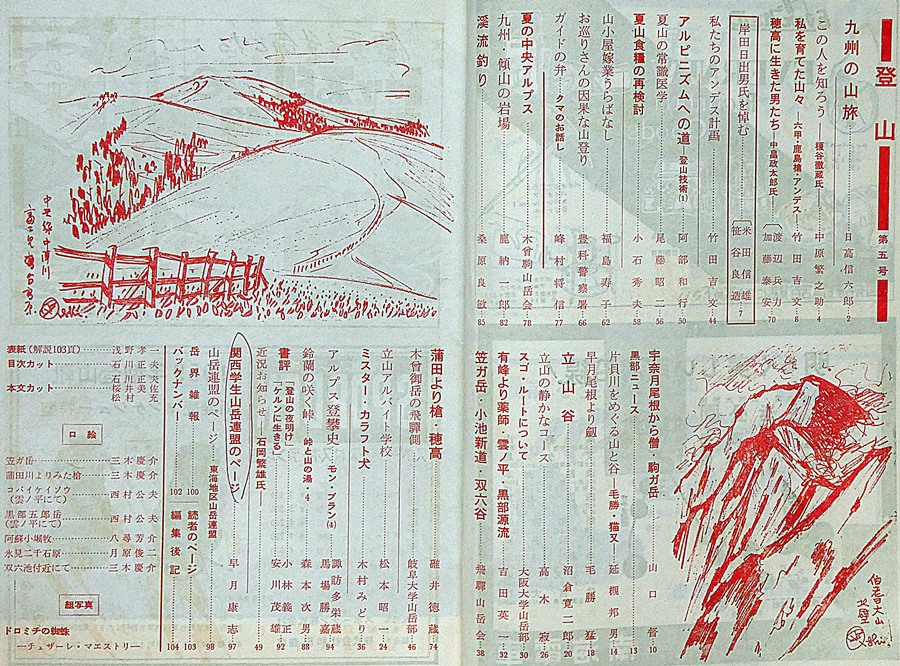 登山
第五号
九州の山旅 日高信六郎 2
この人を知ろう ―榎谷徹蔵氏 中原繁之助 4
私を育てた山々 六甲・鹿島槍・アンデス 竹田吉文 8
穂高に生きた男たち ―中畠政太郎氏 渡辺兵力 加藤泰安 70
岸田日出男氏を悼む 米田信雄 笹谷良造 7
私たちのアンデス計画 竹田吉文 44
アルピニズムへの道 ―登山技術(1) 阿部和行 50
夏山の常識医学 尾藤昭二 56
夏山食糧の再検討 小石秀夫 58
山小屋嫁業うらばなし 福島寿子 62
お巡りさんの因果な山登り 豊科警察署 66
ガイドの弁 ―クマのお話し 峰村将信 77
夏の中央アルプス 木曾駒山岳会 78
九州・傾山の岩場 鹿納一郎 82
溪流釣り 桑原良敏 85
宇奈月尾根から僧・駒ガ岳 山口督 10
黒部ニュース 13
片貝川をめぐる山と谷 ―毛勝・猫又― 延槻邦男 14
早月尾根より劔 毛勝猛 18
立山谷 沼倉寛二郎 20
立山の静かなコース 高木寂 26
スゴ・ルートについて 大阪大学山岳部 30
有峰より薬師・雲ノ平・黒部源流 吉田英一 32
笠ガ岳・小池新道・双六谷 飛騨山岳会 38
蒲田より槍・穂高 碓井徳蔵 74
木曾御岳の飛驒側 岐阜大学山岳部 46
立山アルバイト学校 松本昭一 24
ミスター・カラフト犬 木村みどり 36
アルプス登攀史 ―モン・ブラン(4) 諏訪多栄蔵 94
鈴蘭の咲く峠 峠と山の湯・4 馬場勝嘉 88
書評「登山の夜明け」 森本次男 92
「ケルンに生きる」 小林義正 安川茂雄
近況お知らせ ―石岡繁雄氏 49
関西学生山岳連盟のページ 早月康志 97
山岳連盟のページ 東海地区山岳連盟 98
岳界雑報 100
読者のページ 103
バックナンバー 102
編集後記 104
表紙(解説103頁) 浅野孝一
目次カット 石川正夫
本文カット
口絵
笠ガ岳 三木慶介
蒲田川よりみた槍 三木慶介
コバイケイソウ(雲ノ平にて) 西村公夫
黒部五郎岳(雲ノ平にて) 西村公夫
阿蘇小堀牧 八尋芳介
氷見二千石原 月原俊二
双六池付近にて 三木慶介
組写真
ドロミチの蜘蛛
―チェザーレ・マエストリ―
伯耆大山
北壁